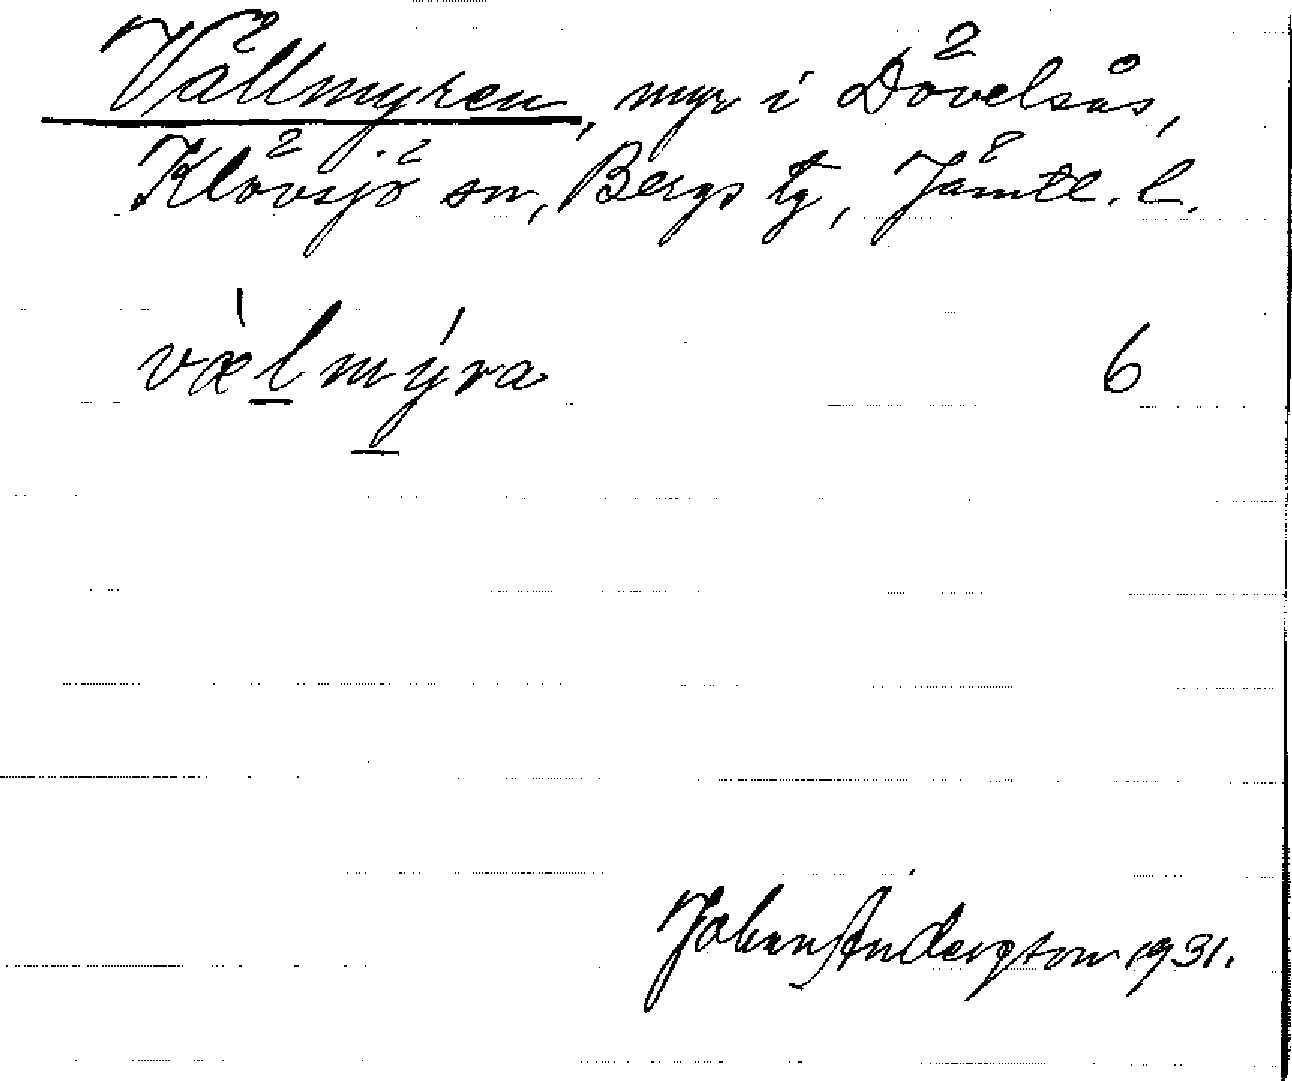 Vällmyren, myr i Dövelsås,
Klövsjö sn, Bergs tg, Jämtl. l.
væ̀lmýra 6
Johan Anderzton 1931.